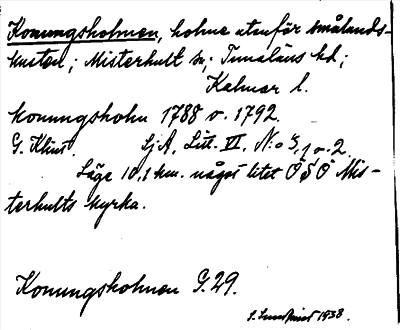 Konungsholmen, holme utanför smålands-
kusten; Misterhult sn; Tunaläns hd;
Kalmar l.
konungsholm 1788 o. 1792.
G. Klint. SjA. Litt. VI. N:o 3, 1 o. 2.
Läge 10,1 km. något litet OSO Mis-
terhults kyrka.
Konungsholmen G.29.
1938.